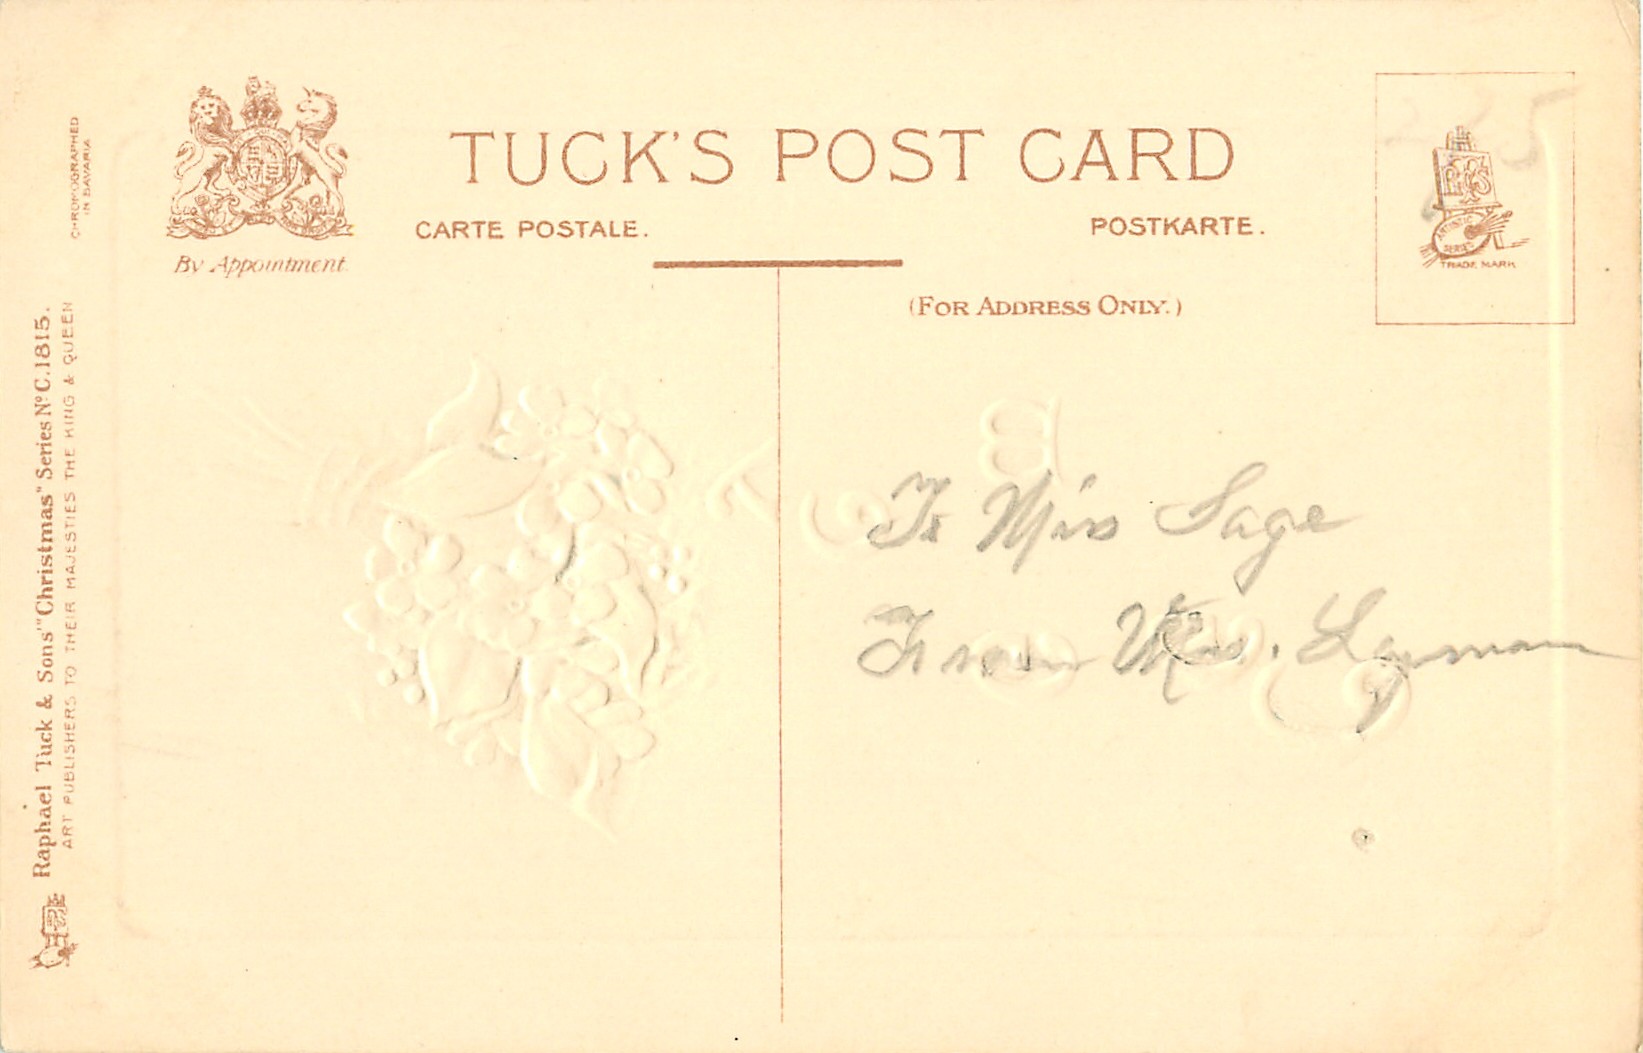 TUCK'S POST CARD
CARTE POSTALE.
POSTKARTE.
(FOR ADDRESS ONLY.)
By Appointment
CHROMOGRAPHED
IN BAVARIA
Raphael Tuck & Sons' "Christmas" Series No C. 1815.
ART PUBLISHERS TO THEIR MAJESTIES THE KING & QUEEN
ARTISTIC
SERIES
TRADE MARK
To Miss Sage
From Mrs. Layman